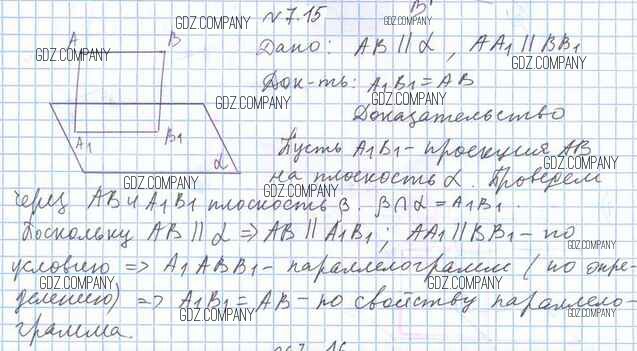 №7.15
GDZ.COMPANY
GDZ.COMPANY
A B
GDZ.COMPANY
Дано: AB || α , AA1 || BB1
GDZ.COMPANY
Док-ть: A1B1 = AB
GDZ.COMPANY
GDZ.COMPANY
GDZ.COMPANY
Доказательство
A1 B1 α
Пусть A1B1 - проекция AB
GDZ.COMPANY
GDZ.COMPANY
на плоскость α. Проведем
GDZ.COMPANY
GDZ.COMPANY
через AB и A1B1 плоскость β. β∩α = A1B1.
GDZ.COMPANY
Поскольку AB || α => AB || A1B1; AA1 || BB1 - по
GDZ.COMPANY
условию => A1ABB1 - параллелограмм (по опре-
GDZ.COMPANY
GDZ.COMPANY
делению) => A1B1 = AB - по свойству параллело-
GDZ.COMPANY
GDZ.COMPANY
GDZ.COMPANY
грамма.